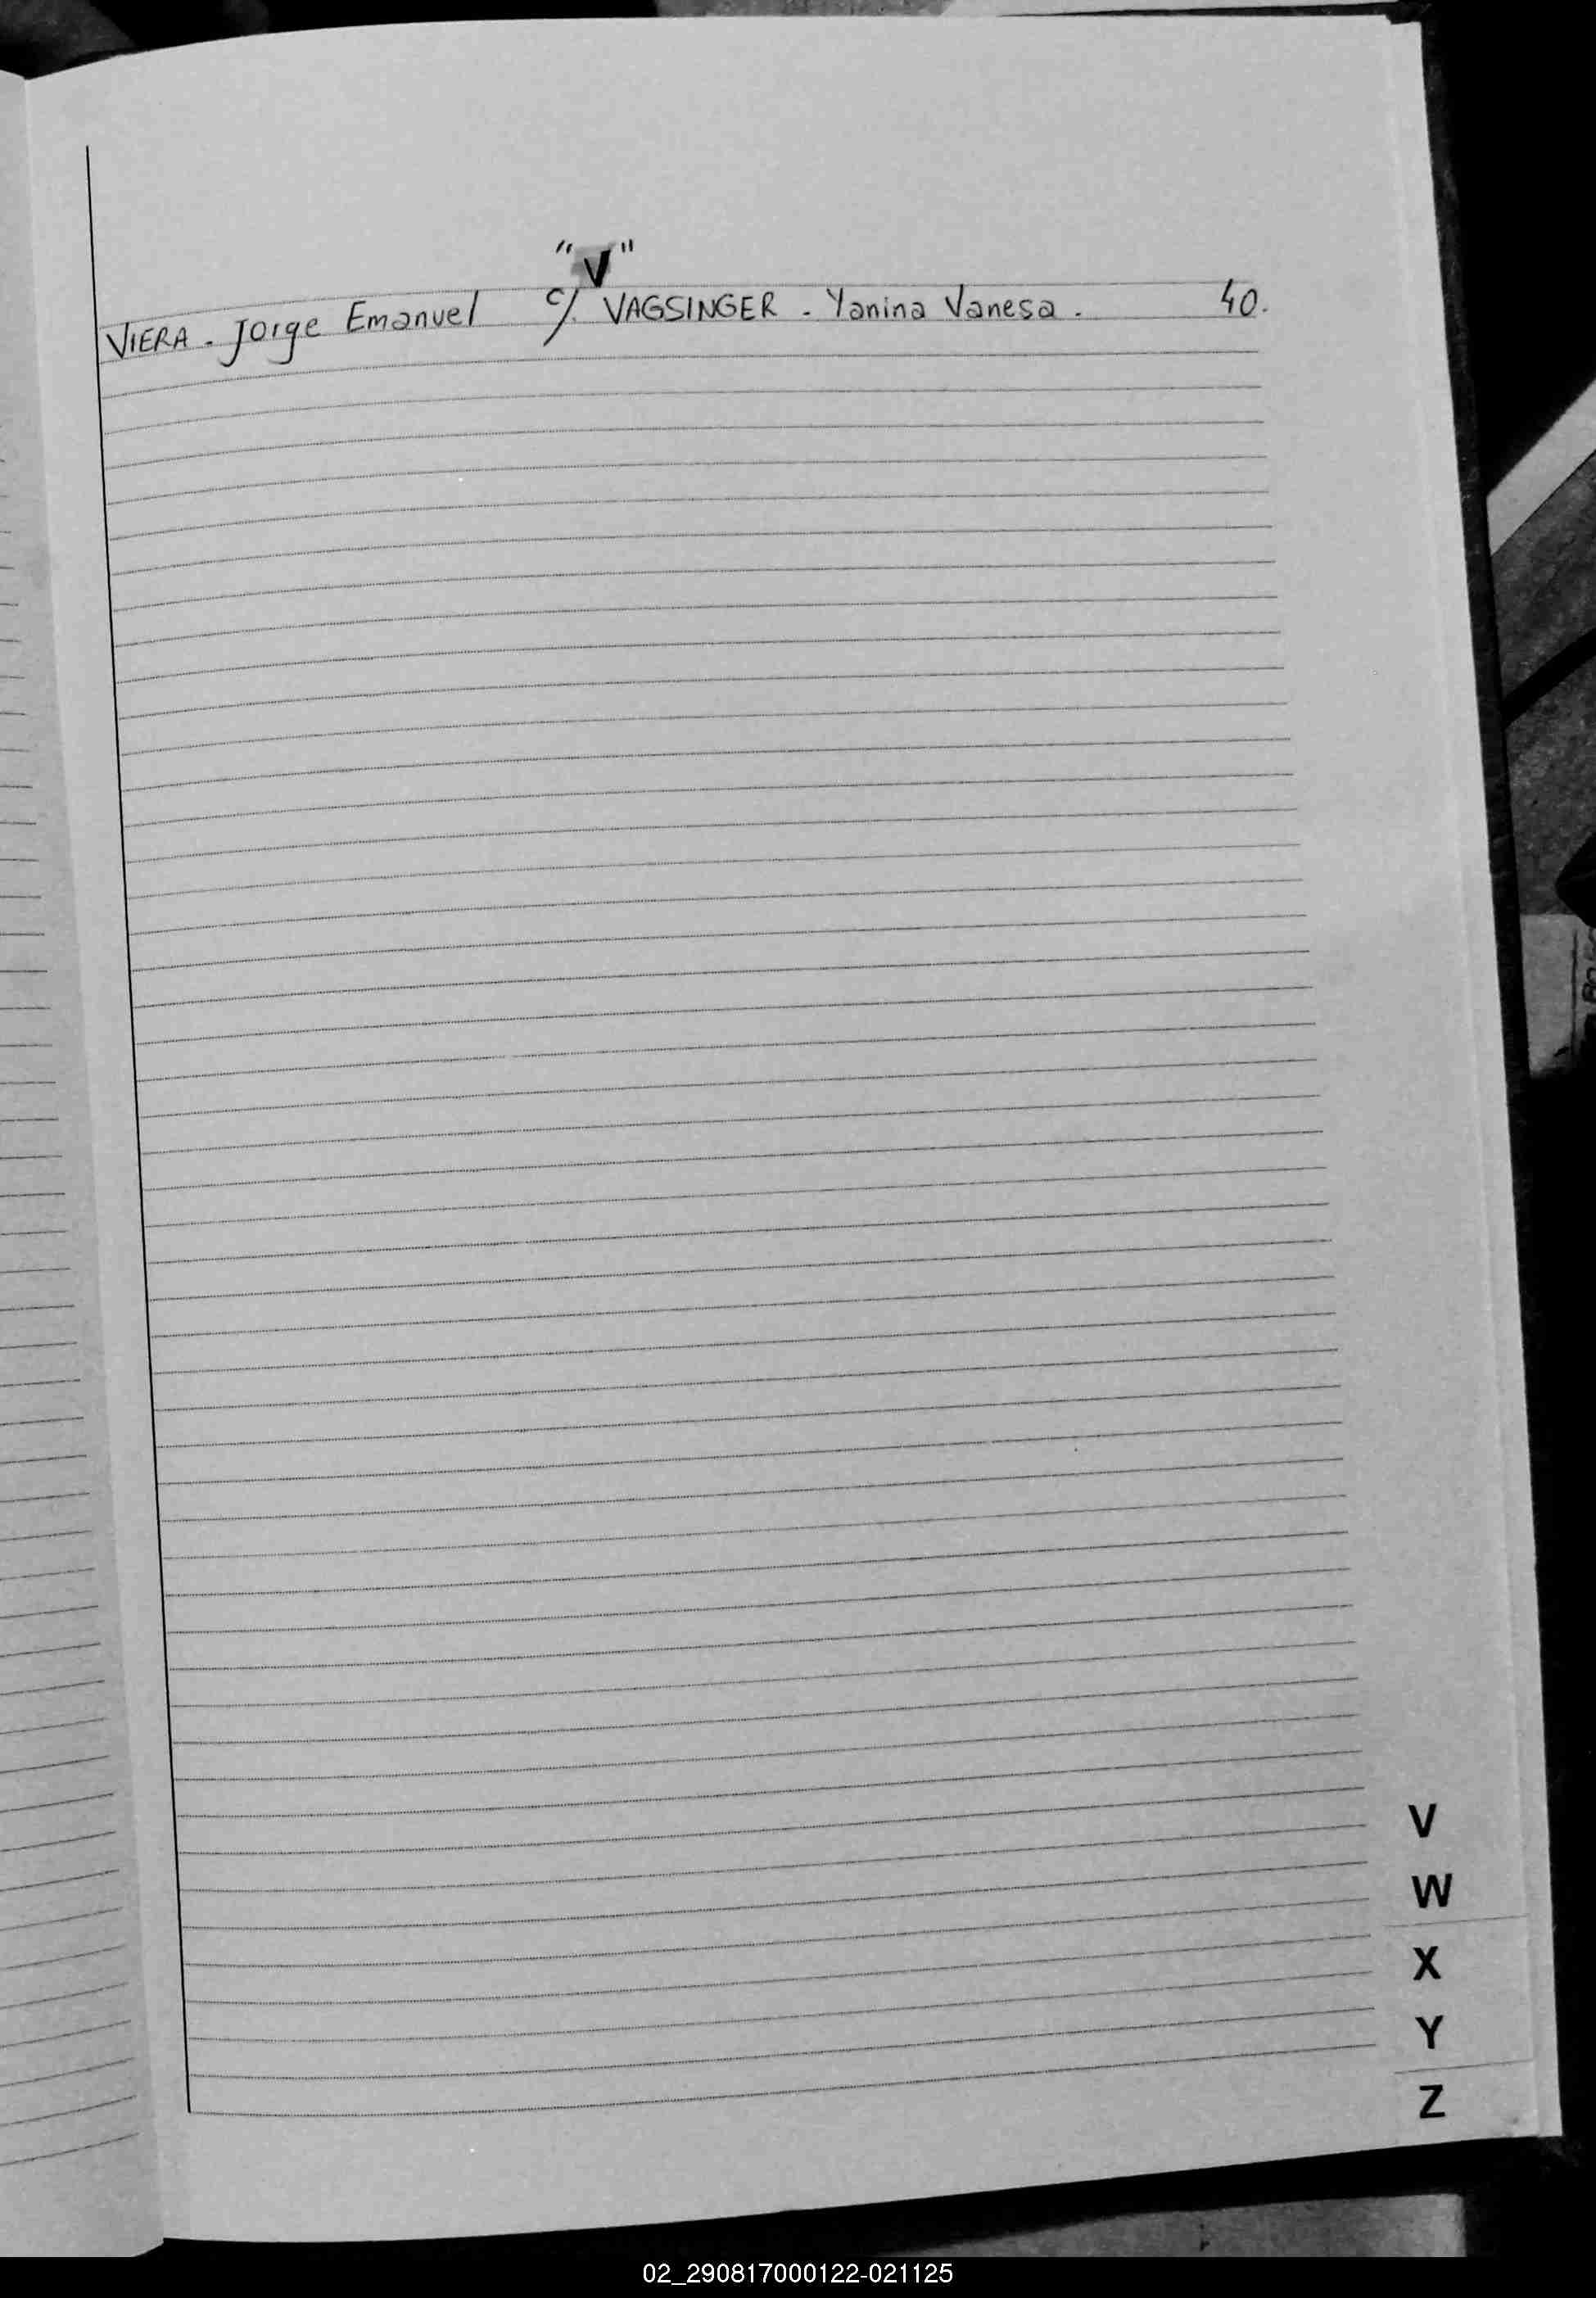 "V"
VIERA - Jorge Emanuel c/. VAGSINGER - Yanina Vanesa. 40.
V
W
X
Y
Z
02_290817000122-021125